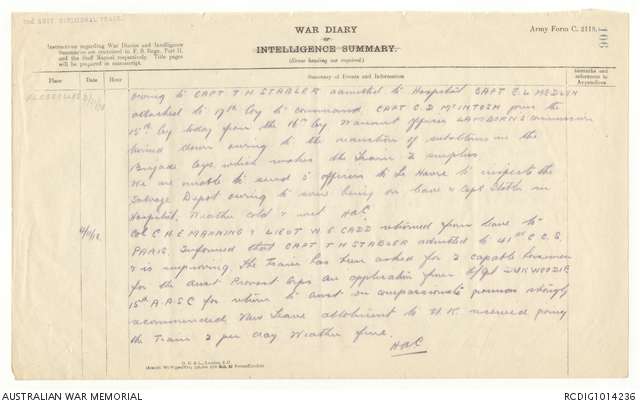 2nd AUST DIVISIONAL TRAIN.
WAR DIARY
or
INTELLIGENCE SUMMARY.
(Erase heading not required.)
Army Form C. 2118.
106
Instructions regarding War Diaries and Intelligence
Summaries are contained in F. S. Regs., Part II.
and the Staff Manual respectively. Title pages
will be prepared in manuscript.
Place
Date
Hour
Summary of Events and Information
Remarks and
references to
Appendices
owing to CAPT T H STABLER admitted to Hospital CAPT E. L. MEDLYN
attached to 17th Coy to command. CAPT C D McINTOSH joins the
15th Coy today from the 16th Coy Warrant officer LAMBDEN'S commission
turned down owing to the reduction of subalterns in the
Brigade Coys which makes the Train 2 surplus
We are unable to send 3 officers to Le Havre to inspect the
Salvage Depot owing to some being on leave & Capt Stabler in
Hospital. Weather cold & wet
4/11/18
Col C. A. E. MANNING & LIEUT W E CADD returned from leave to
PARIS. Informed that CAPT T H STABLER admitted to 41st C. C. S.
& is improving. The Train has been asked for 2 capable horsemen
for the Aust Provost Corps an application from
15th A.A.S.C for return to Aust on compassionate grounds strongly
recommended. New leave allotment to U.K. received giving
the Train 2 per day Weather fine.